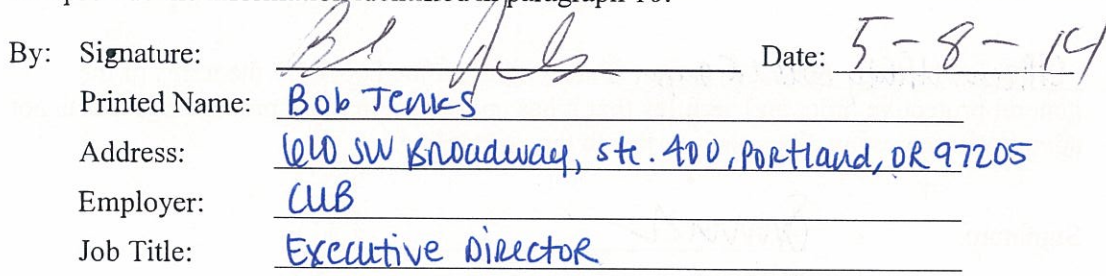 By: Signature: Date: 5-8-14
Printed Name: Bob Jenks
Address: 610 SW Broadway, Ste. 400, Portland, OR 97205
Employer: CUB
Job Title: Executive Director